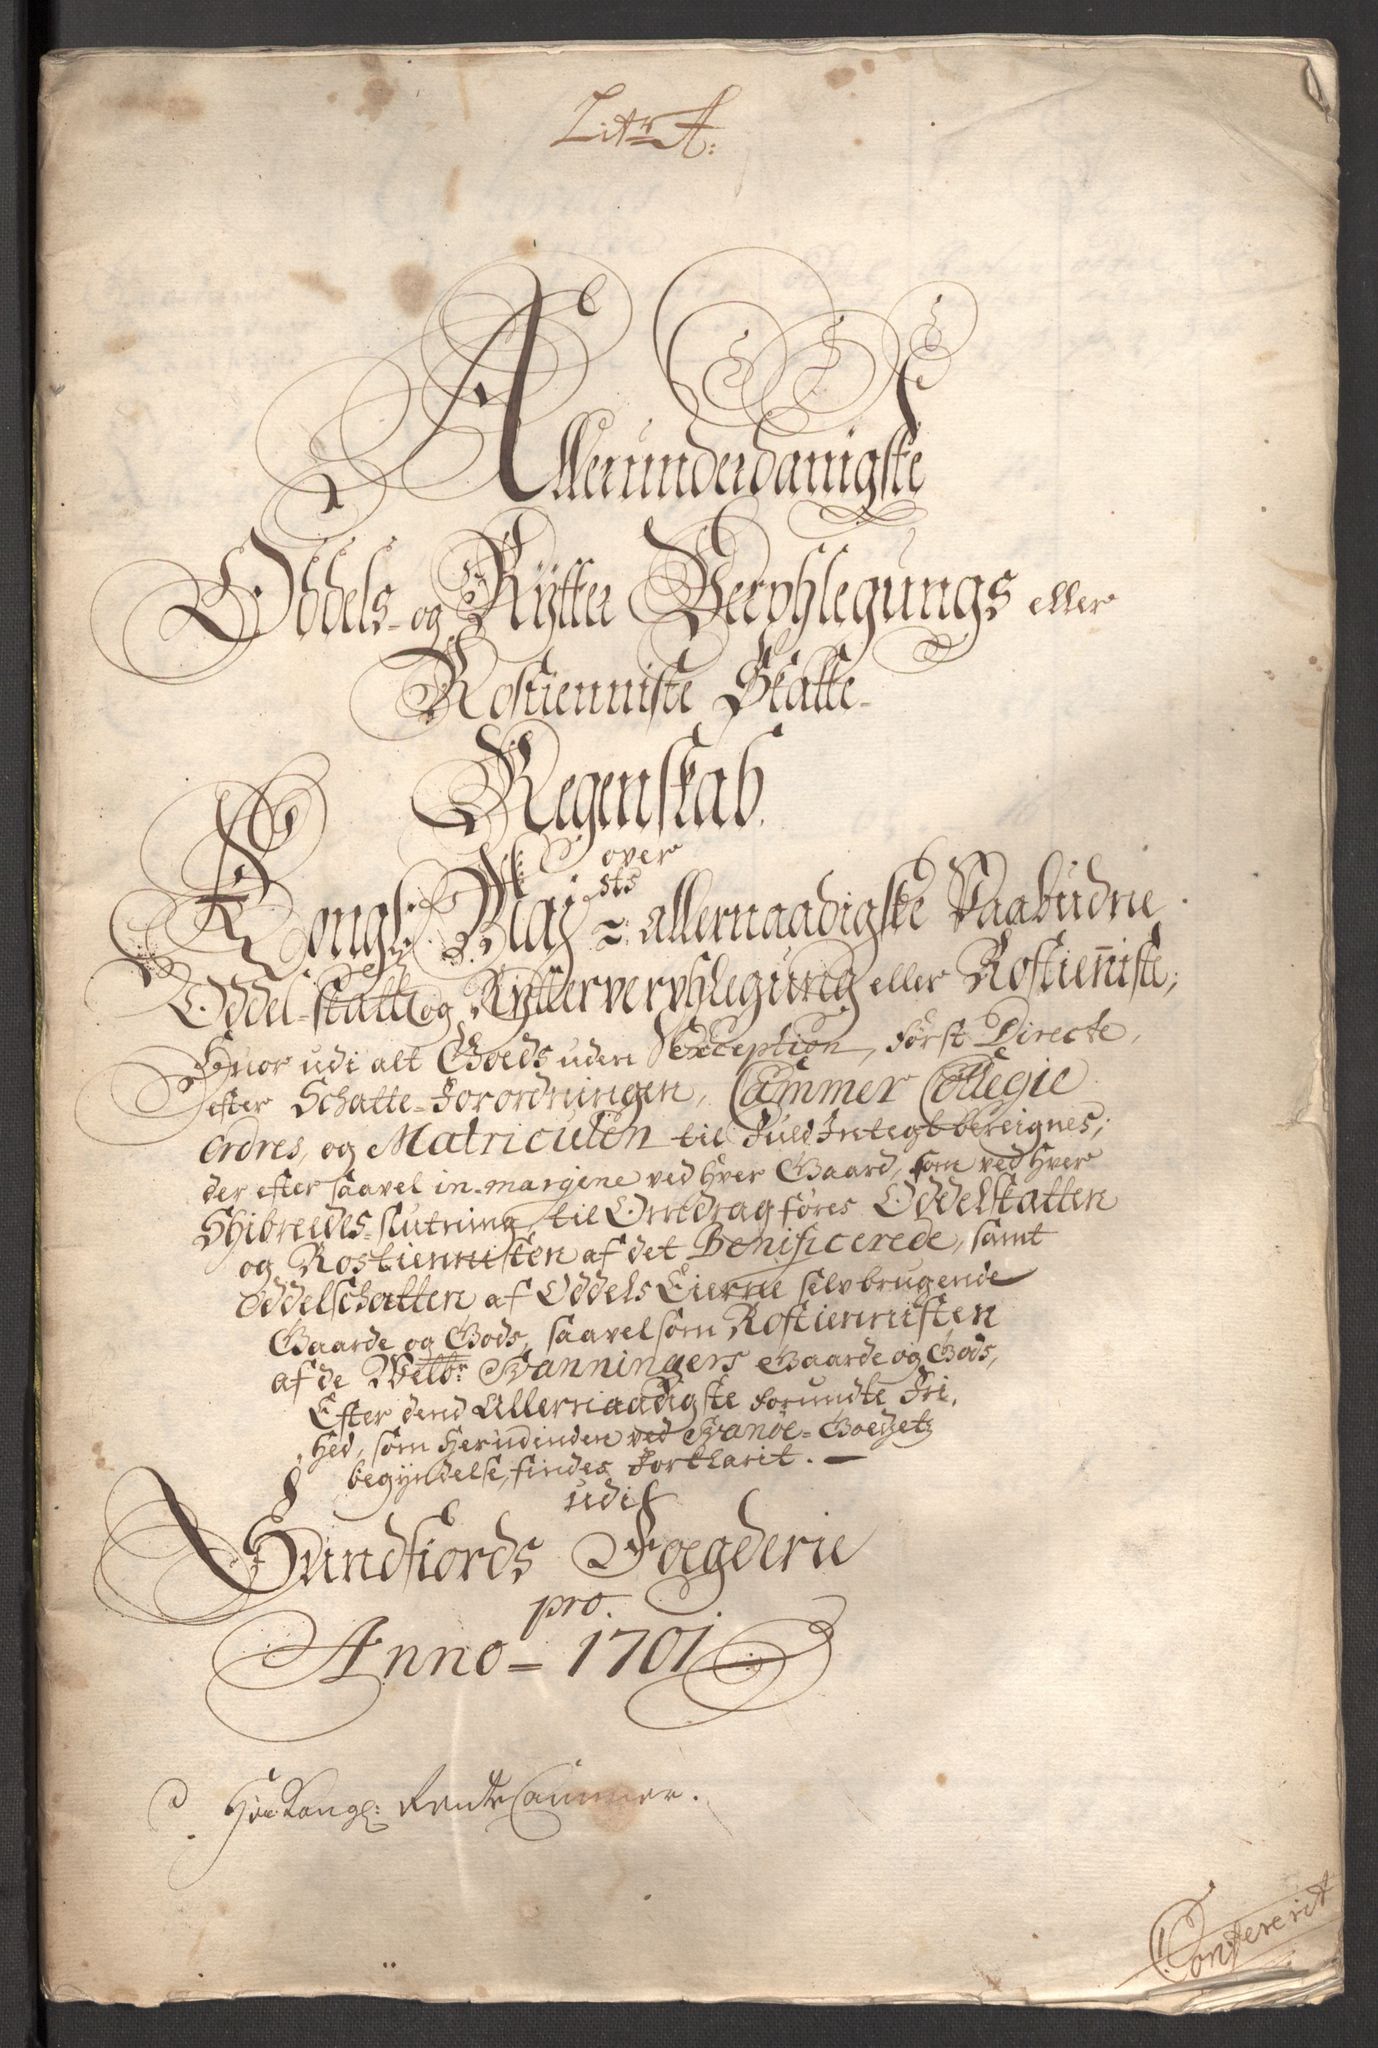 Litr A:
Allerunderdanigste
Oddels- og Rÿtter Verphlegungs eller
Rostienniste Skatte-
Regenskab.
over
Kongl: Maj:sts allernaadigste Paabudne
Oddel-skatt og Rytterverphlegung eller Rostieniste;
Huor udi alt Goeds uden Exception, først Directe,
efter Schatte-Forordningen, Cammer Collegie
ordres, og Matriculen til fuld Integt bereignes;
der efter saavel in-margine ved hver Gaard, som ved hver
Schibreedes-slutning, til Orredrag føres Oddelskatten
og Rostiennisten af det Benificerede, samt
oddelschatten af Oddels Eierne selvbrugende
Gaarde og Gods, saavelsom Rostiennisten
af de Welbr: Svanningers Gaarde og Gods,
Efter dend Allernaadigste forundte Fri,
hed, som herudinden ved Svanøe-Goedzetz
begyndelse, findes forklarit. —
udi
Sundfiords Foegderie
pro.
Anno - 1701
Kongl: Rente Cammer.
Confererit